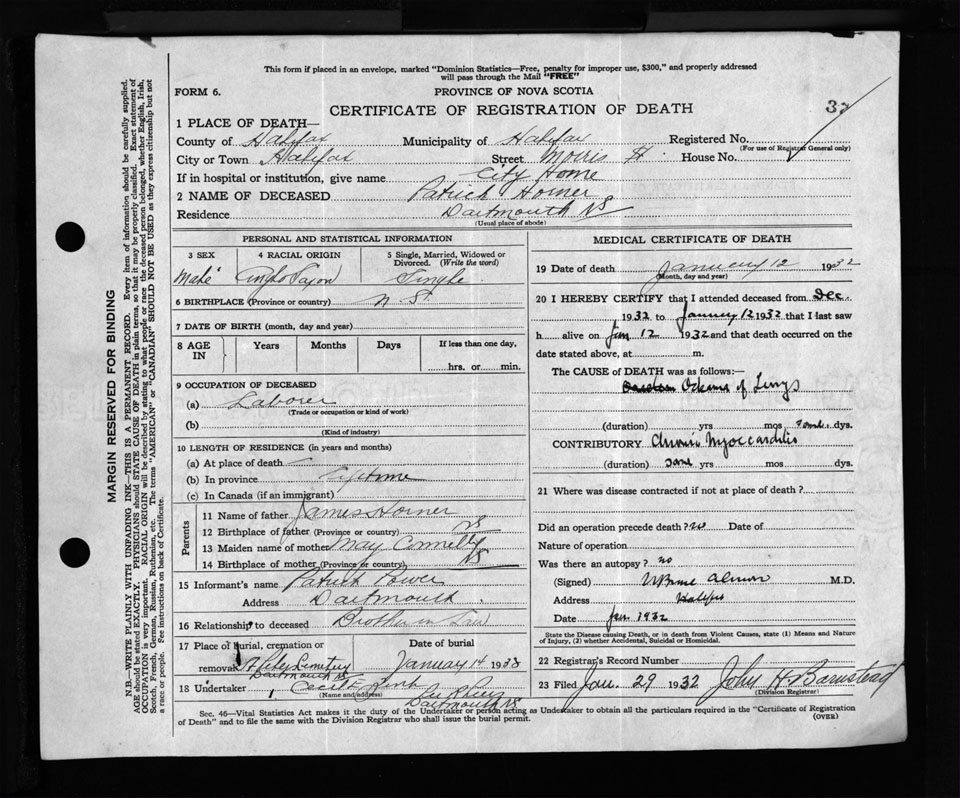 This form if placed in an envelope, marked "Dominion Statistics—Free, penalty for improper use, $300," and properly addressed
will pass through the Mail "FREE"
FORM 6.
PROVINCE OF NOVA SCOTIA
CERTIFICATE OF REGISTRATION OF DEATH
1 PLACE OF DEATH—
County of Halifax Municipality of Halifax Registered No.
(For use of Registrar General only)
City or Town Halifax Street Morris St. House No.
If in hospital or institution, give name City Home
2 NAME OF DECEASED Patrick Horner
Residence Dartmouth NS
(Usual place of abode)
PERSONAL AND STATISTICAL INFORMATION
3 SEX 4 RACIAL ORIGIN 5 Single, Married, Widowed or Divorced. (Write the word)
Male Anglo Saxon Single
6 BIRTHPLACE (Province or country) N S.
7 DATE OF BIRTH (month, day and year)
8 AGE IN Years Months Days If less than one day,
hrs. or min.
9 OCCUPATION OF DECEASED
(a) Laborer
(Trade or occupation or kind of work)
(b)
(Kind of industry)
10 LENGTH OF RESIDENCE (in years and months)
(a) At place of death
(b) In province Lifetime
(c) In Canada (if an immigrant)
Parents
11 Name of father James Horner
12 Birthplace of father (Province or country) NS
13 Maiden name of mother May Connelly
14 Birthplace of mother (Province or country) NS
15 Informant's name Patrick Power
Address Dartmouth
16 Relationship to deceased Brother in Law
17 Place of burial, cremation or removal Date of burial
St Peter Cemetery January 14 1933
Dartmouth NS
18 Undertaker Cecil E
(Name and address)
Dartmouth NS
MEDICAL CERTIFICATE OF DEATH
19 Date of death January 12 1932
(Month, day and year)
20 I HEREBY CERTIFY that I attended deceased from Dec.
1932 to January 12 1932 that I last saw
h alive on Jan 12 1932 and that death occurred on the
date stated above, at m.
The CAUSE of DEATH was as follows:—
Oedema of Lungs
(duration) yrs mos dys.
CONTRIBUTORY Chronic Myocarditis
(duration) yrs mos dys.
21 Where was disease contracted if not at place of death?
Did an operation precede death? no Date of
Nature of operation
Was there an autopsy? no
(Signed) Almon M.D.
Address Halifax
Date Jan 1932
State the Disease causing Death, or in death from Violent Causes, state (1) Means and Nature
of Injury, (2) whether Accidental, Suicidal or Homicidal.
22 Registrar's Record Number
23 Filed Jan. 29 1932 John H Barnstead
(Division Registrar)
Sec. 46—Vital Statistics Act makes it the duty of the Undertaker or person acting as Undertaker to obtain all the particulars required in the "Certificate of Registration
of Death" and to file the same with the Division Registrar who shall issue the burial permit.
(OVER)
MARGIN RESERVED FOR BINDING
N.B.—WRITE PLAINLY WITH UNFADING INK—THIS IS A PERMANENT RECORD. Every item of information should be carefully supplied.
AGE should be stated EXACTLY. PHYSICIANS should STATE CAUSE OF DEATH in plain terms, so that it may be properly classified. Exact statement of
OCCUPATION is very important. RACIAL ORIGIN will be described by stating to what people or race the deceased person belonged, whether English, Irish,
Scotch, French, German, Russian, Ruthenian, etc. The terms "AMERICAN" or "CANADIAN" SHOULD NOT BE USED as they express citizenship but not
a race or people. See instructions on back of Certificate.